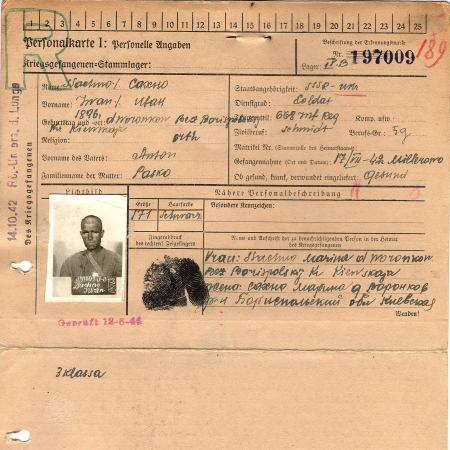 1 2 3 4 5 6 7 8 9 10 11 12 13 14 15 16 17 18 19 20 21 22 23 24 25
R
Personalkarte I: Personelle Angaben
Beschriftung der Erkennungsmarke
Nr. 197009
189
Kriegsgefangenen-Stammlager:
Lager: IV B
Name: Сахно
Vorname: Iwan
Staatsangehörigkeit:
1896,
Dienstgrad: Soldat
Geburtstag und -ort: d woronkow
Truppenteil: 658 Inf Reg Komp. usw.:
Religion: orth
Zivilberuf: schmidt Berufs-Gr.: 5g
Matrikel Nr. (Stammrolle des Heimatstaates):
Vorname des Vaters: Anton
Gefangennahme (Ort und Datum): 17/VII-42 Millerowo
Familienname der Mutter: Pasko
Ob gesund, krank, verwundet eingeliefert: Gesund
14.10.42 Rö.-Un erg. d. Lunge
Des Kriegsgefangenen
Lichtbild
Nähere Personalbeschreibung
Größe Haarfarbe Besondere Kennzeichen:
171 Schwarz
Fingerabdruck
des rechten! Zeigefingers
Name und Anschrift der zu benachrichtigenden Person in der Heimat
des Kriegsgefangenen
Frau: marina d woronkow
Kr Kiewskaja
Сахно Марина д Воронков
р-н Бориспольский обл Киевская
Wenden!
Geprüft 12-5-44
3 Klassa